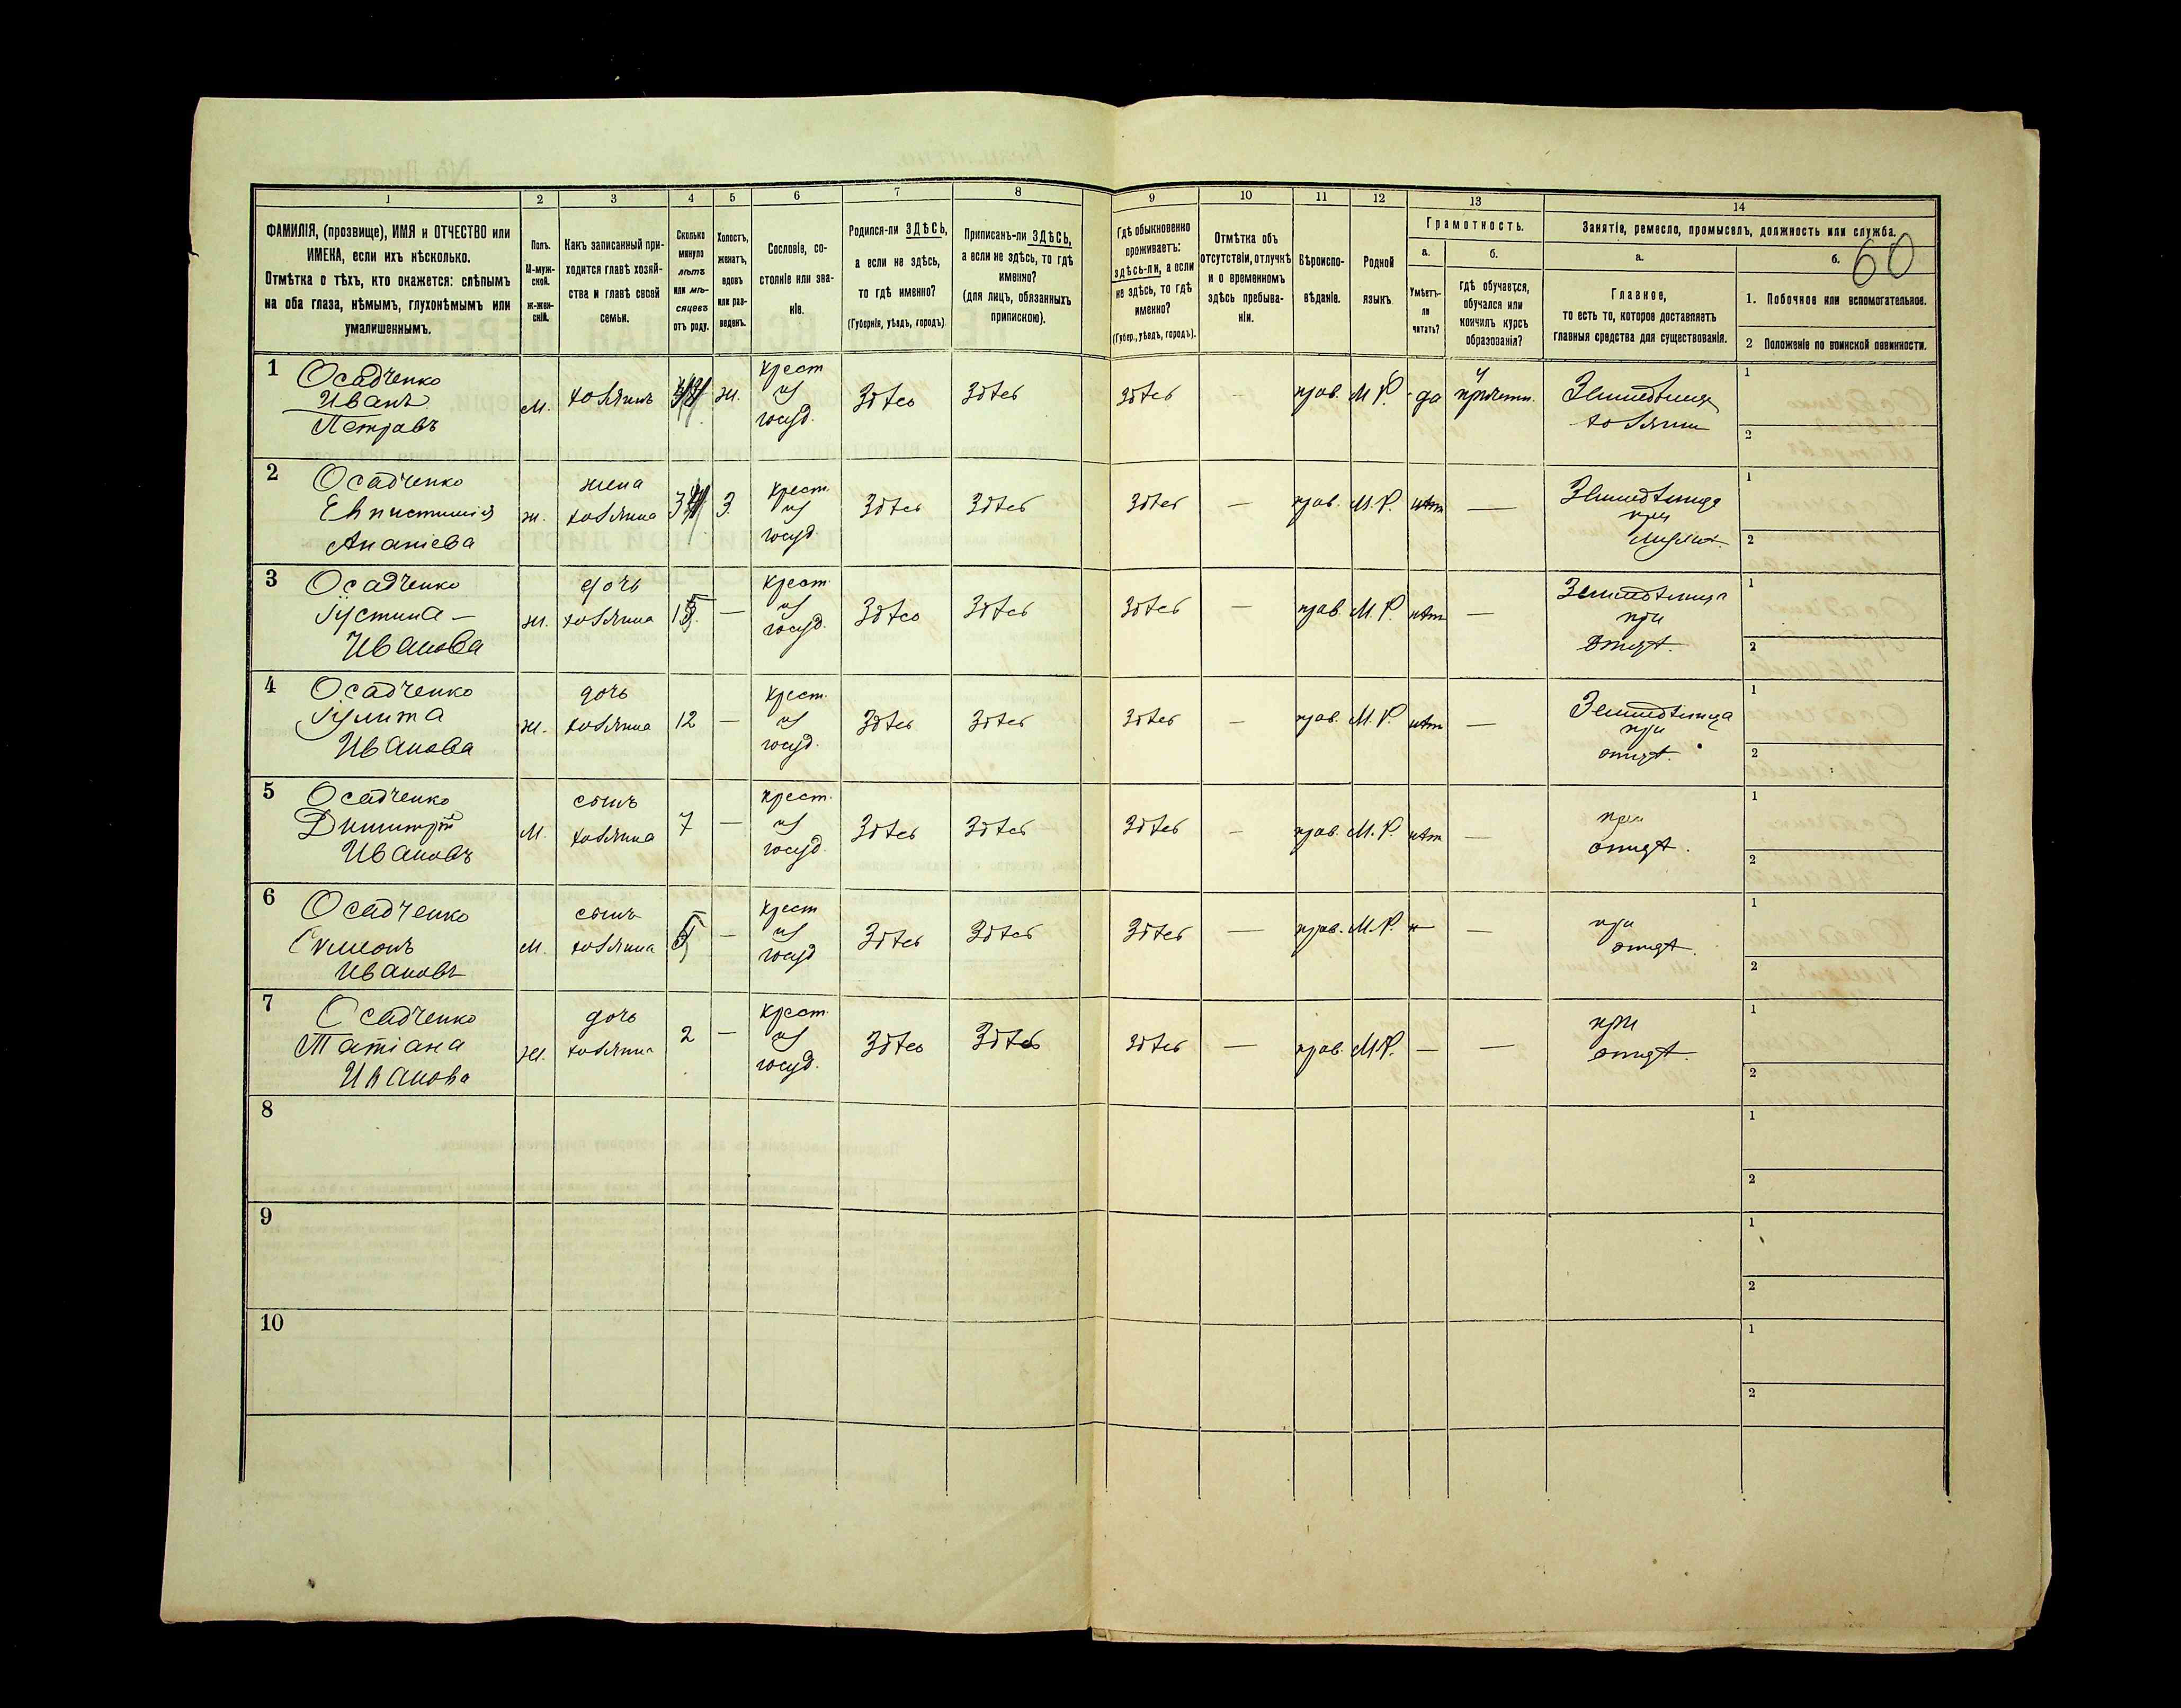 1
2
3
4
5
6
7
8
9
10
11
12
13
14
ФАМИЛІЯ, (прозвище), ИМЯ и ОТЧЕСТВО или
ИМЕНА, если ихъ нѣсколько.
Отмѣтка о тѣхъ, кто окажется: слѣпымъ
на оба глаза, нѣмымъ, глухонѣмымъ или
умалишеннымъ.
Полъ.
М-муж-
ской.
ж-жен-
скій.
Какъ записанный при-
ходится главѣ хозяй-
ства и главѣ своей
семьи.
Сколько
минуло
лѣтъ
или мѣ-
сяцевъ
отъ роду.
Холостъ,
женатъ,
вдовъ
или раз-
веденъ.
Сословіе, со-
стояніе или зва-
ніе.
Родился-ли ЗДѢСЬ,
а если не здѣсь,
то гдѣ именно?
(Губернія, уѣздъ, городъ)
Приписанъ-ли ЗДѢСЬ,
а если не здѣсь, то гдѣ
именно?
(для лицъ, обязанныхъ
припискою).
Гдѣ обыкновенно
проживаетъ:
здѣсь-ли, а если
не здѣсь, то гдѣ
именно?
(Губер., уѣздъ, городъ).
Отмѣтка объ
отсутствіи, отлучкѣ
и о временномъ
здѣсь пребыва-
ніи.
Вѣроиспо-
вѣданіе.
Родной
языкъ.
Грамотность.
а.
Умѣетъ-
ли
читать?
б.
гдѣ обучается,
обучался или
кончилъ курсъ
образованія?
Занятіе, ремесло, промыселъ, должность или служба.
60
а.
Главное,
то есть то, которое доставляетъ
главныя средства для существованія.
б.
1. Побочное или вспомогательное.
2 Положеніе по воинской повинности.
1
Осадченко
Иванъ
Петровъ
м.
хозяинъ
ж.
крест
из
госуд.
здѣсь
здѣсь
здѣсь
—
прав.
М.Р.
да
1
2
2
Осадченко
Ананіева
ж.
жена
хозяина
З.
крест.
из
госуд.
здѣсь
здѣсь
здѣсь
—
прав.
М.Р.
нѣт
—
при
1
2
3
Осадченко
Іустина
Иванова
ж.
дочь
хозяина
—
крест.
из
госуд.
здѣсь
здѣсь
здѣсь
—
прав.
М.Р.
нѣт
—
при
отцѣ.
1
2
4
Осадченко
Іулита
Иванова
ж.
дочь
хозяина
12
—
крест.
из
госуд.
здѣсь
здѣсь
здѣсь
—
прав.
М.Р.
нѣт
—
при
отцѣ.
1
2
5
Осадченко
Димитрій
Ивановъ
м.
сынъ
хозяина
7
—
крест.
из
госуд.
здѣсь
здѣсь
здѣсь
—
прав.
М.Р.
нѣт
—
при
отцѣ.
1
2
6
Осадченко
Симонъ
Ивановъ
м.
сынъ
хозяина
—
крест
из
госуд
здѣсь
здѣсь
здѣсь
—
прав.
М.Р.
—
при
отцѣ.
1
2
7
Осадченко
Татіана
Иванова
ж.
дочь
хозяина
2
—
крест.
из
госуд.
здѣсь
здѣсь
здѣсь
—
прав.
М.Р.
—
—
при
отцѣ.
1
2
8
1
2
9
1
2
10
1
2